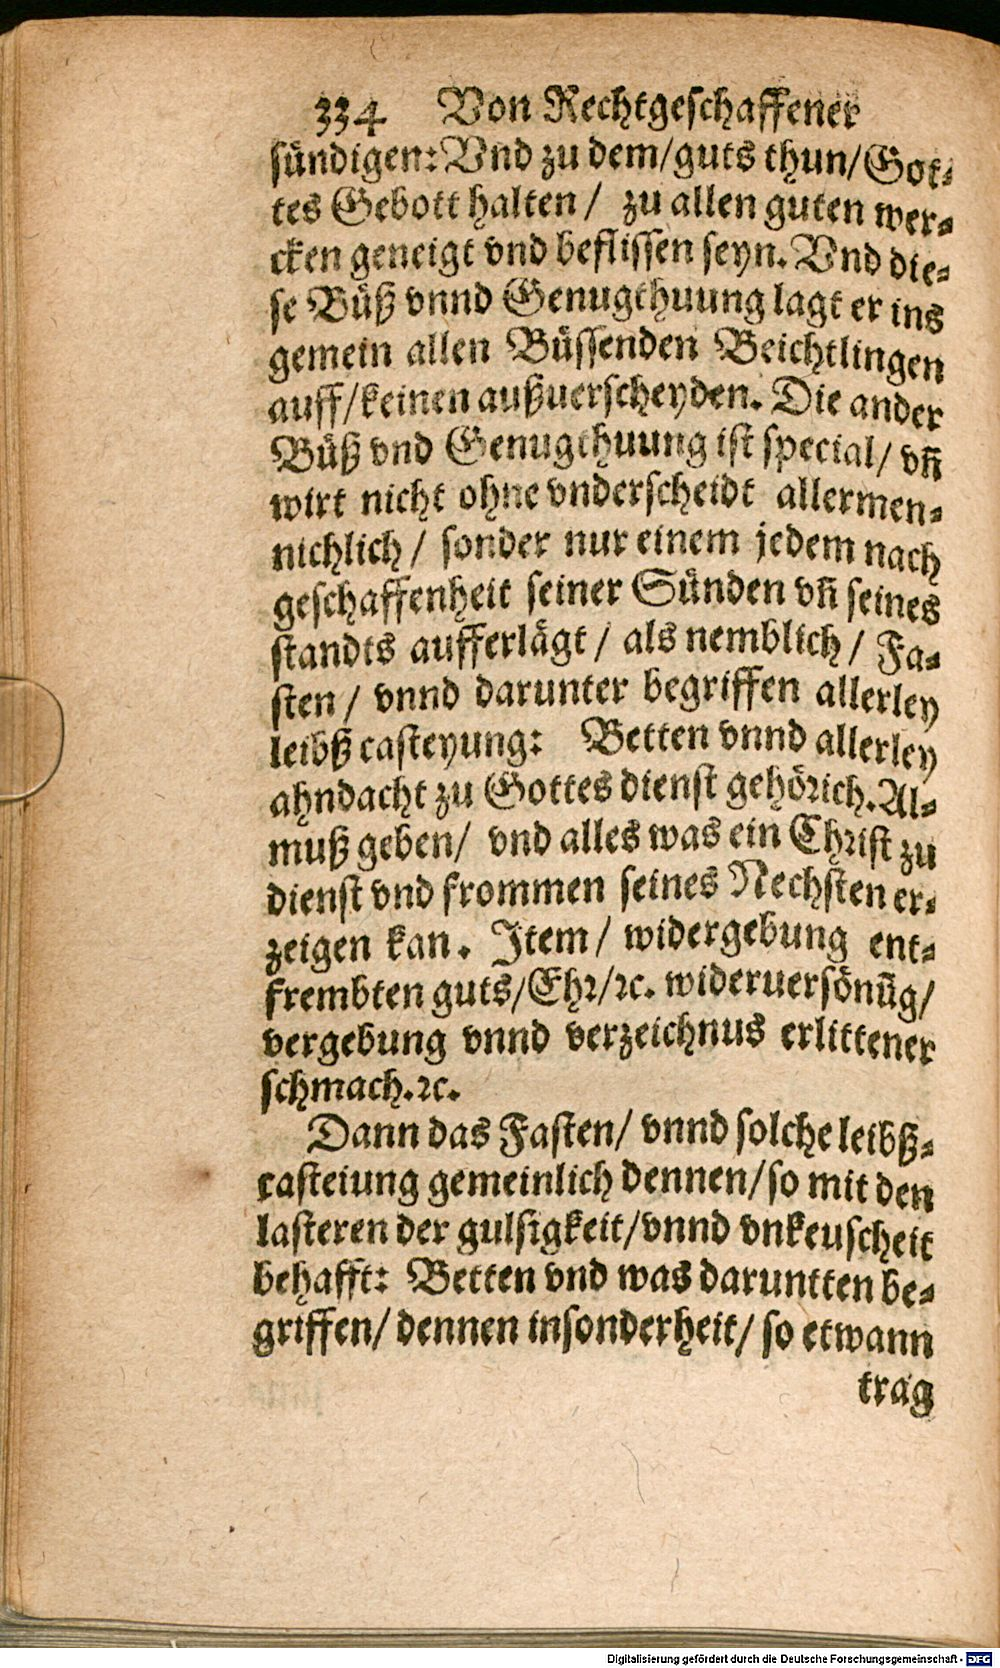 334 Von Rechtgeschaffener
sündigen: Vnd zu dem/guts thun/Got-
tes Gebott halten/ zu allen guten wer-
cken geneigt vnd beflissen seyn. Vnd die-
se Büß vnnd Genugthuung lagt er ins
gemein allen Büssenden Beichtlingen
auff/keinen außuerscheyden. Die ander
Büß vnd Genugthuung ist special/ vñ
wirt nicht ohne vnderscheidt allermen-
nichlich/ sonder nur einem jedem nach
geschaffenheit seiner Sünden vñ seines
standts aufferlägt/ als nemblich/ Fa-
sten/ vnnd darunter begriffen allerley
leibß casteyung: Betten vnnd allerley
ahndacht zu Gottes dienst gehörich. Al-
muß geben/ vnd alles was ein Christ zu
dienst vnd frommen seines Nechsten er-
zeigen kan. Item/ widergebung ent-
frembten guts/Ehr/ꝛc. wideruersönũg/
vergebung vnnd verzeichnus erlittener
schmach.ꝛc.
Dann das Fasten/ vnnd solche leibß-
casteiung gemeinlich dennen/so mit den
lasteren der gulsigkeit/vnnd vnkeuscheit
behafft: Betten vnd was daruntten be-
griffen/ dennen insonderheit/ so etwann
trag
Digitalisierung gefördert durch die Deutsche Forschungsgemeinschaft - DFG